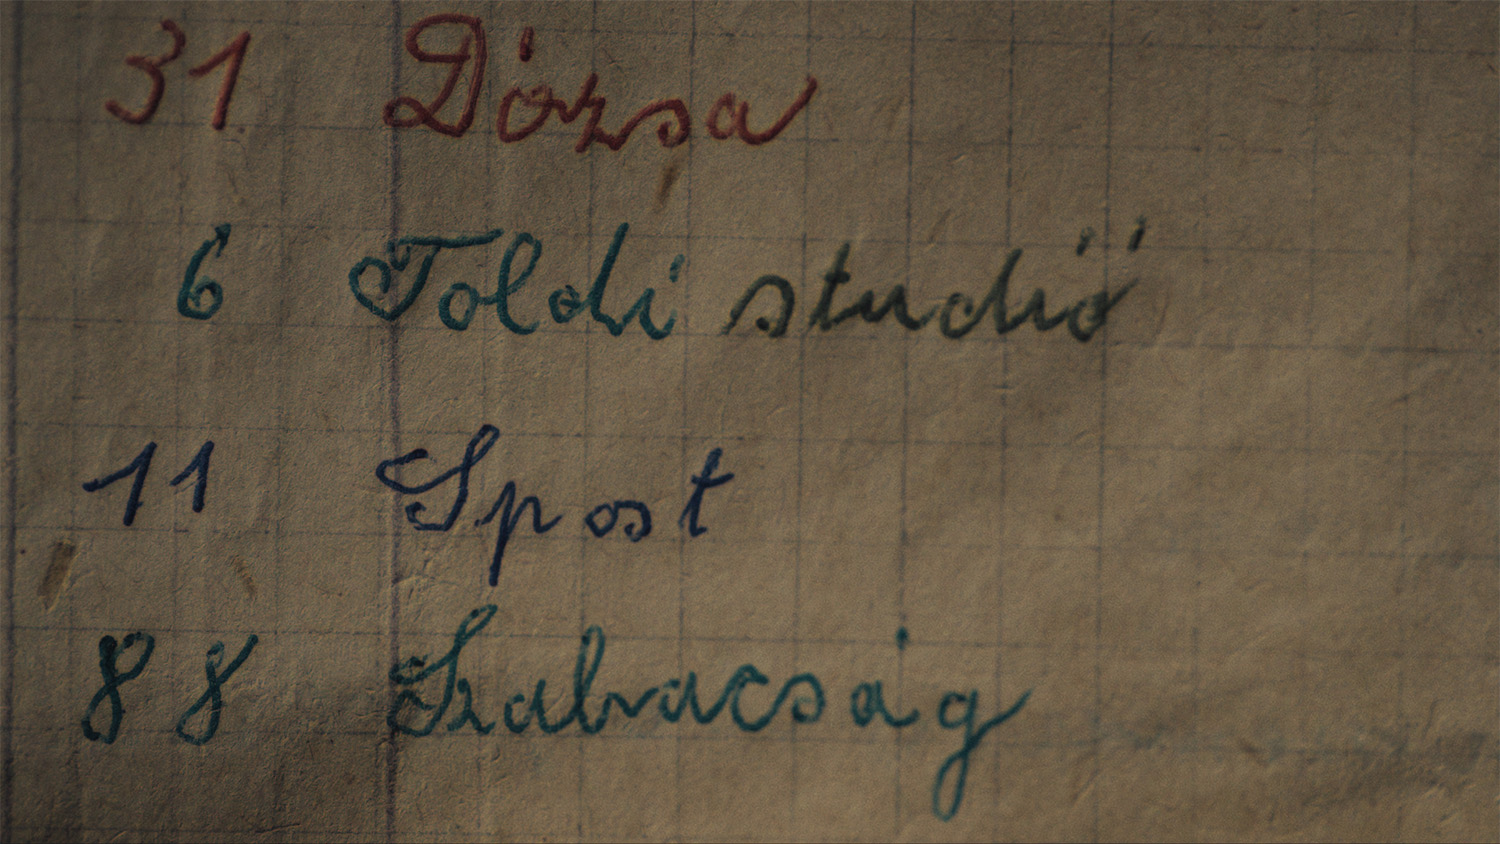 31 Dózsa
6 Toldi studió
11 Spost
88 Szabacság